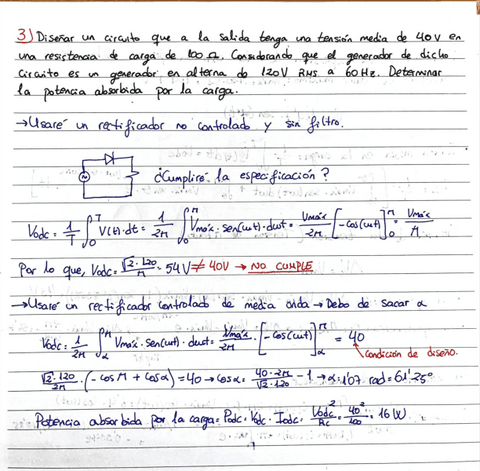 3) Diseñar un circuito que a la salida tenga una tensión media de 40V en
una resistencia de carga de 100 Ω. Considerando que el generador de dicho
circuito es un generador en alterna de 120V RMS a 60Hz. Determinar
la potencia absorbida por la carga.
→ Usaré un rectificador no controlado y sin filtro.
¿Cumplirá la especificación?
Vodc = 1/T ∫₀ᵀ V(t)·dt = 1/2π ∫₀^π Vmáx·sen(ωt)·dωt = Vmáx/2π [-cos(ωt)]₀^π = Vmáx/π
Por lo que, Vodc = √2·120/π = 54V ≠ 40V → NO CUMPLE
→ Usaré un rectificador controlado de media onda → Debo de sacar α
Vodc = 1/2π ∫α^π Vmáx·sen(ωt)·dωt = Vmáx/2π · [-cos(ωt)]α^π = 40
Condición de diseño.
√2·120/2π · (-cos π + cos α) = 40 → cos α = 40·2π/√2·120 - 1 → α = 1'07 rad = 61'25°
Potencia absorbida por la carga = Podc = Vodc · Iodc = Vodc²/RL = 40²/100 = 16 W